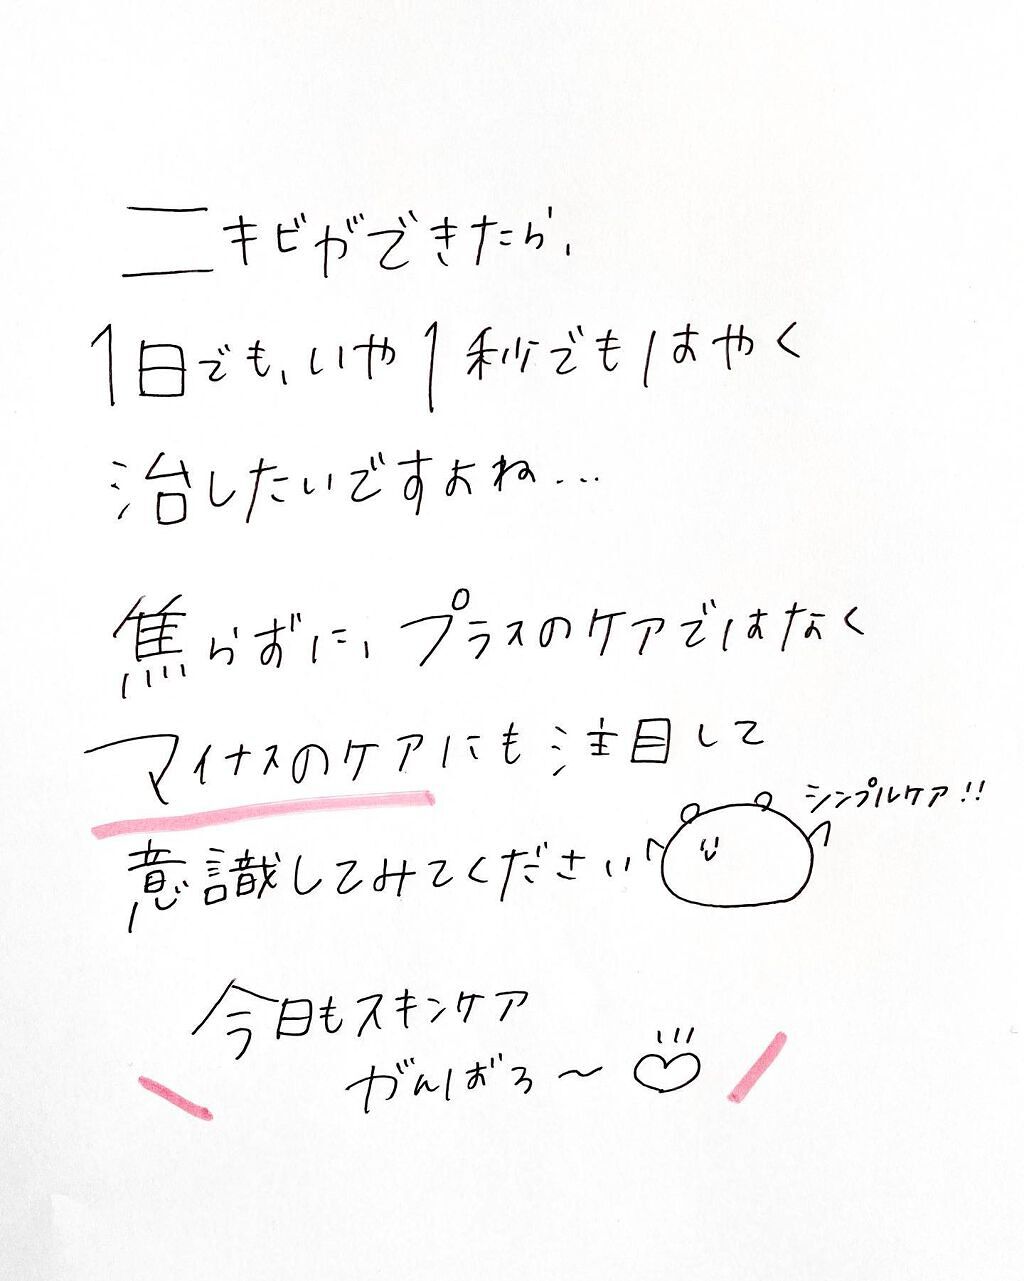 ニキビができたら、
1日でも、いや1秒でもはやく
治したいですよね...
焦らずに、プラスのケアではなく
マイナスのケアにも注目して
シンプルケア!!
意識してみてください
今日もスキンケア
がんばろ〜♡